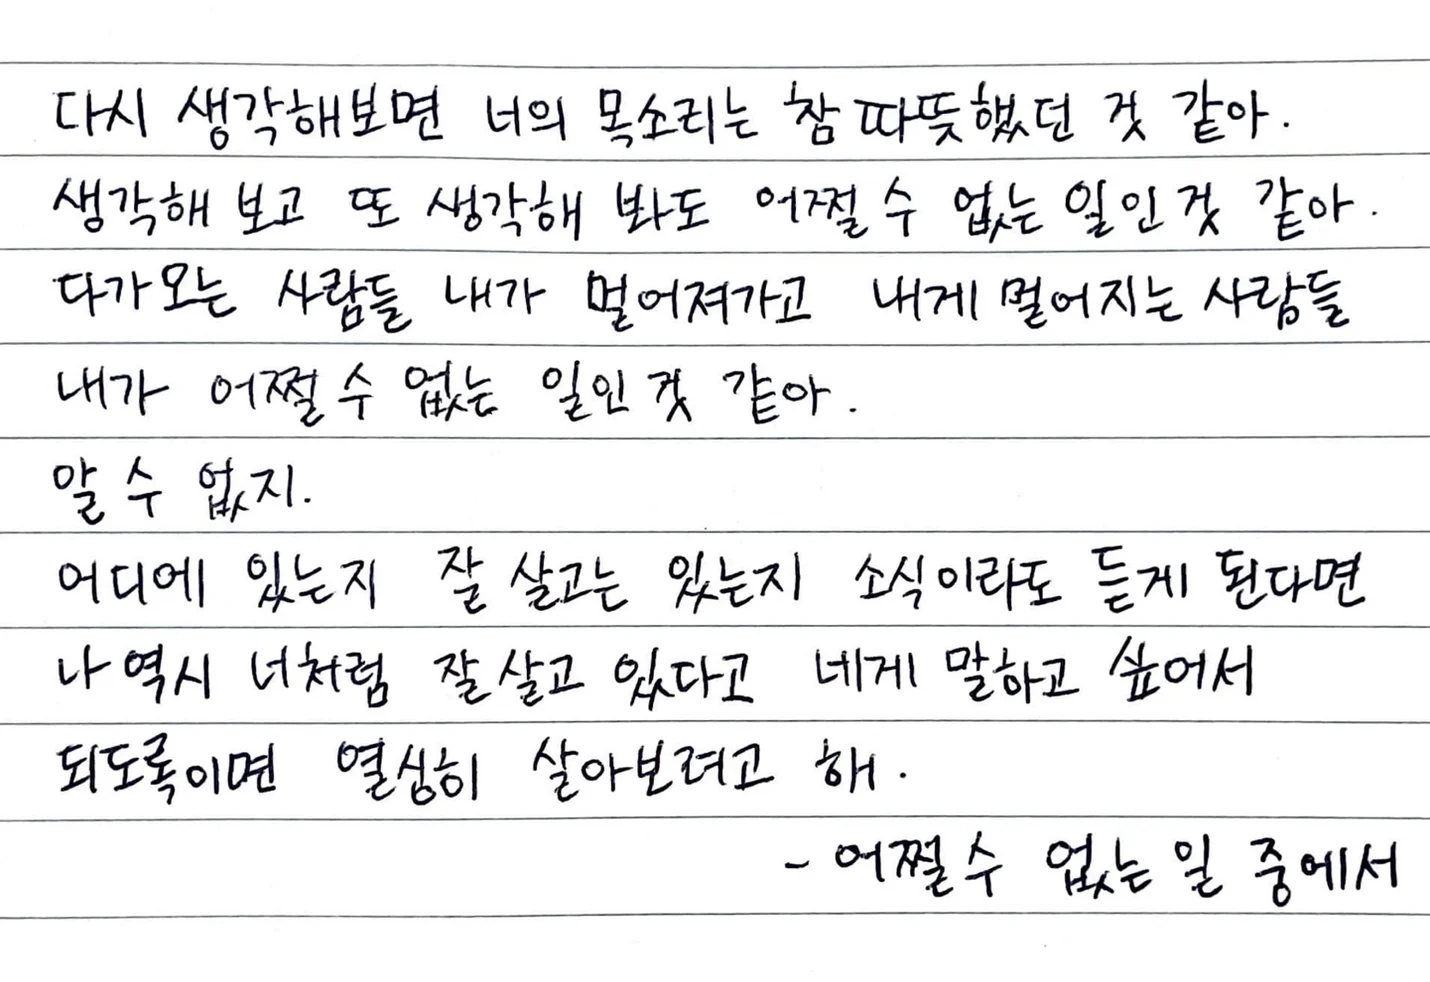 다시 생각해보면 너의 목소리는 참 따뜻했던 것 같아.
생각해 보고 또 생각해 봐도 어쩔 수 없는 일인 것 같아.
다가오는 사람들 내가 멀어져가고 내게 멀어지는 사람들
내가 어쩔 수 없는 일인 것 같아.
알 수 없지.
어디에 있는지 잘 살고는 있는지 소식이라도 듣게 된다면
나 역시 너처럼 잘 살고 있다고 네게 말하고 싶어서
되도록이면 열심히 살아보려고 해.
- 어쩔 수 없는 일 중에서